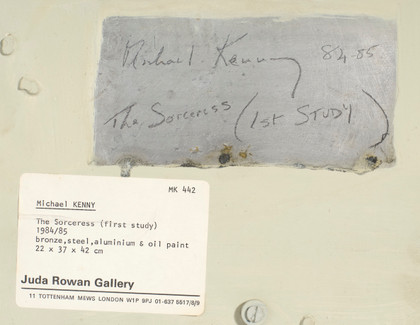 Michael Kenny 84-85.
The Sorceress (1st STUDY)
MK 442
Michael KENNY
The Sorceress (first study)
1984/85
bronze,steel,aluminium & oil paint
22 x 37 x 42 cm
Juda Rowan Gallery
11 TOTTENHAM MEWS LONDON W1P 9PJ 01-637 5517/8/9